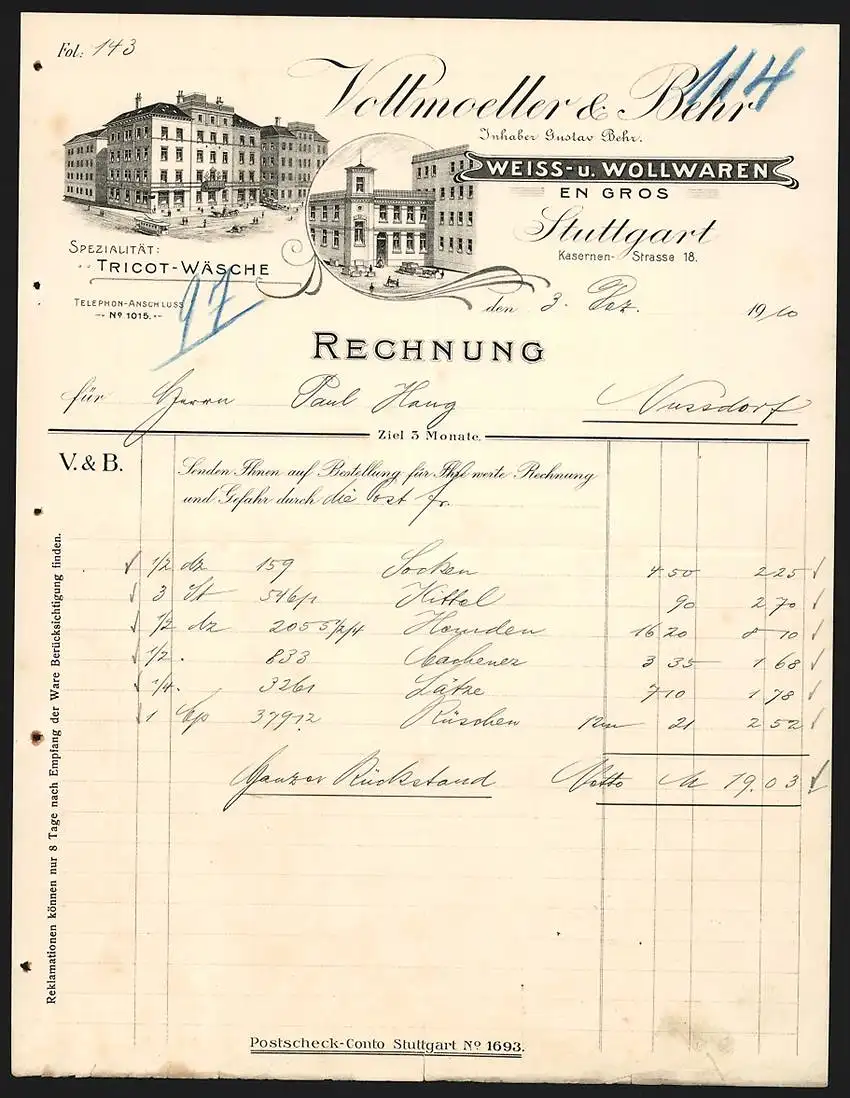 Fol: 143
114
Vollmoeller & Behr
Inhaber Gustav Behr.
WEISS- u. WOLLWAREN
EN GROS
Stuttgart
Kasernen- Strasse 18.
SPEZIALITÄT:
TRICOT-WÄSCHE
TELEPHON-ANSCHLUSS
No 1015.
97
den 3. Dez. 1910
RECHNUNG
für Herrn Paul Haug Nussdorf
Ziel 3 Monate.
V. & B.
Senden Ihnen auf Bestellung für Ihre werte Rechnung
und Gefahr durch die Post fr.
1/2 dz 159 Socken 4 50 2 25
3 St 546 Kittel 90 2 70
1/2 dz 2055/2/4 Hemden 16 20 8 10
1/2 . 833 3 35 1 68
1/4 . 3261 Lätze 7 10 1 78
1 37912 Rüschen 12m 21 2 52
Ganzer Rückstand Netto M 19.03
Reklamationen können nur 8 Tage nach Empfang der Ware Berücksichtigung finden.
Postscheck-Conto Stuttgart No 1693.